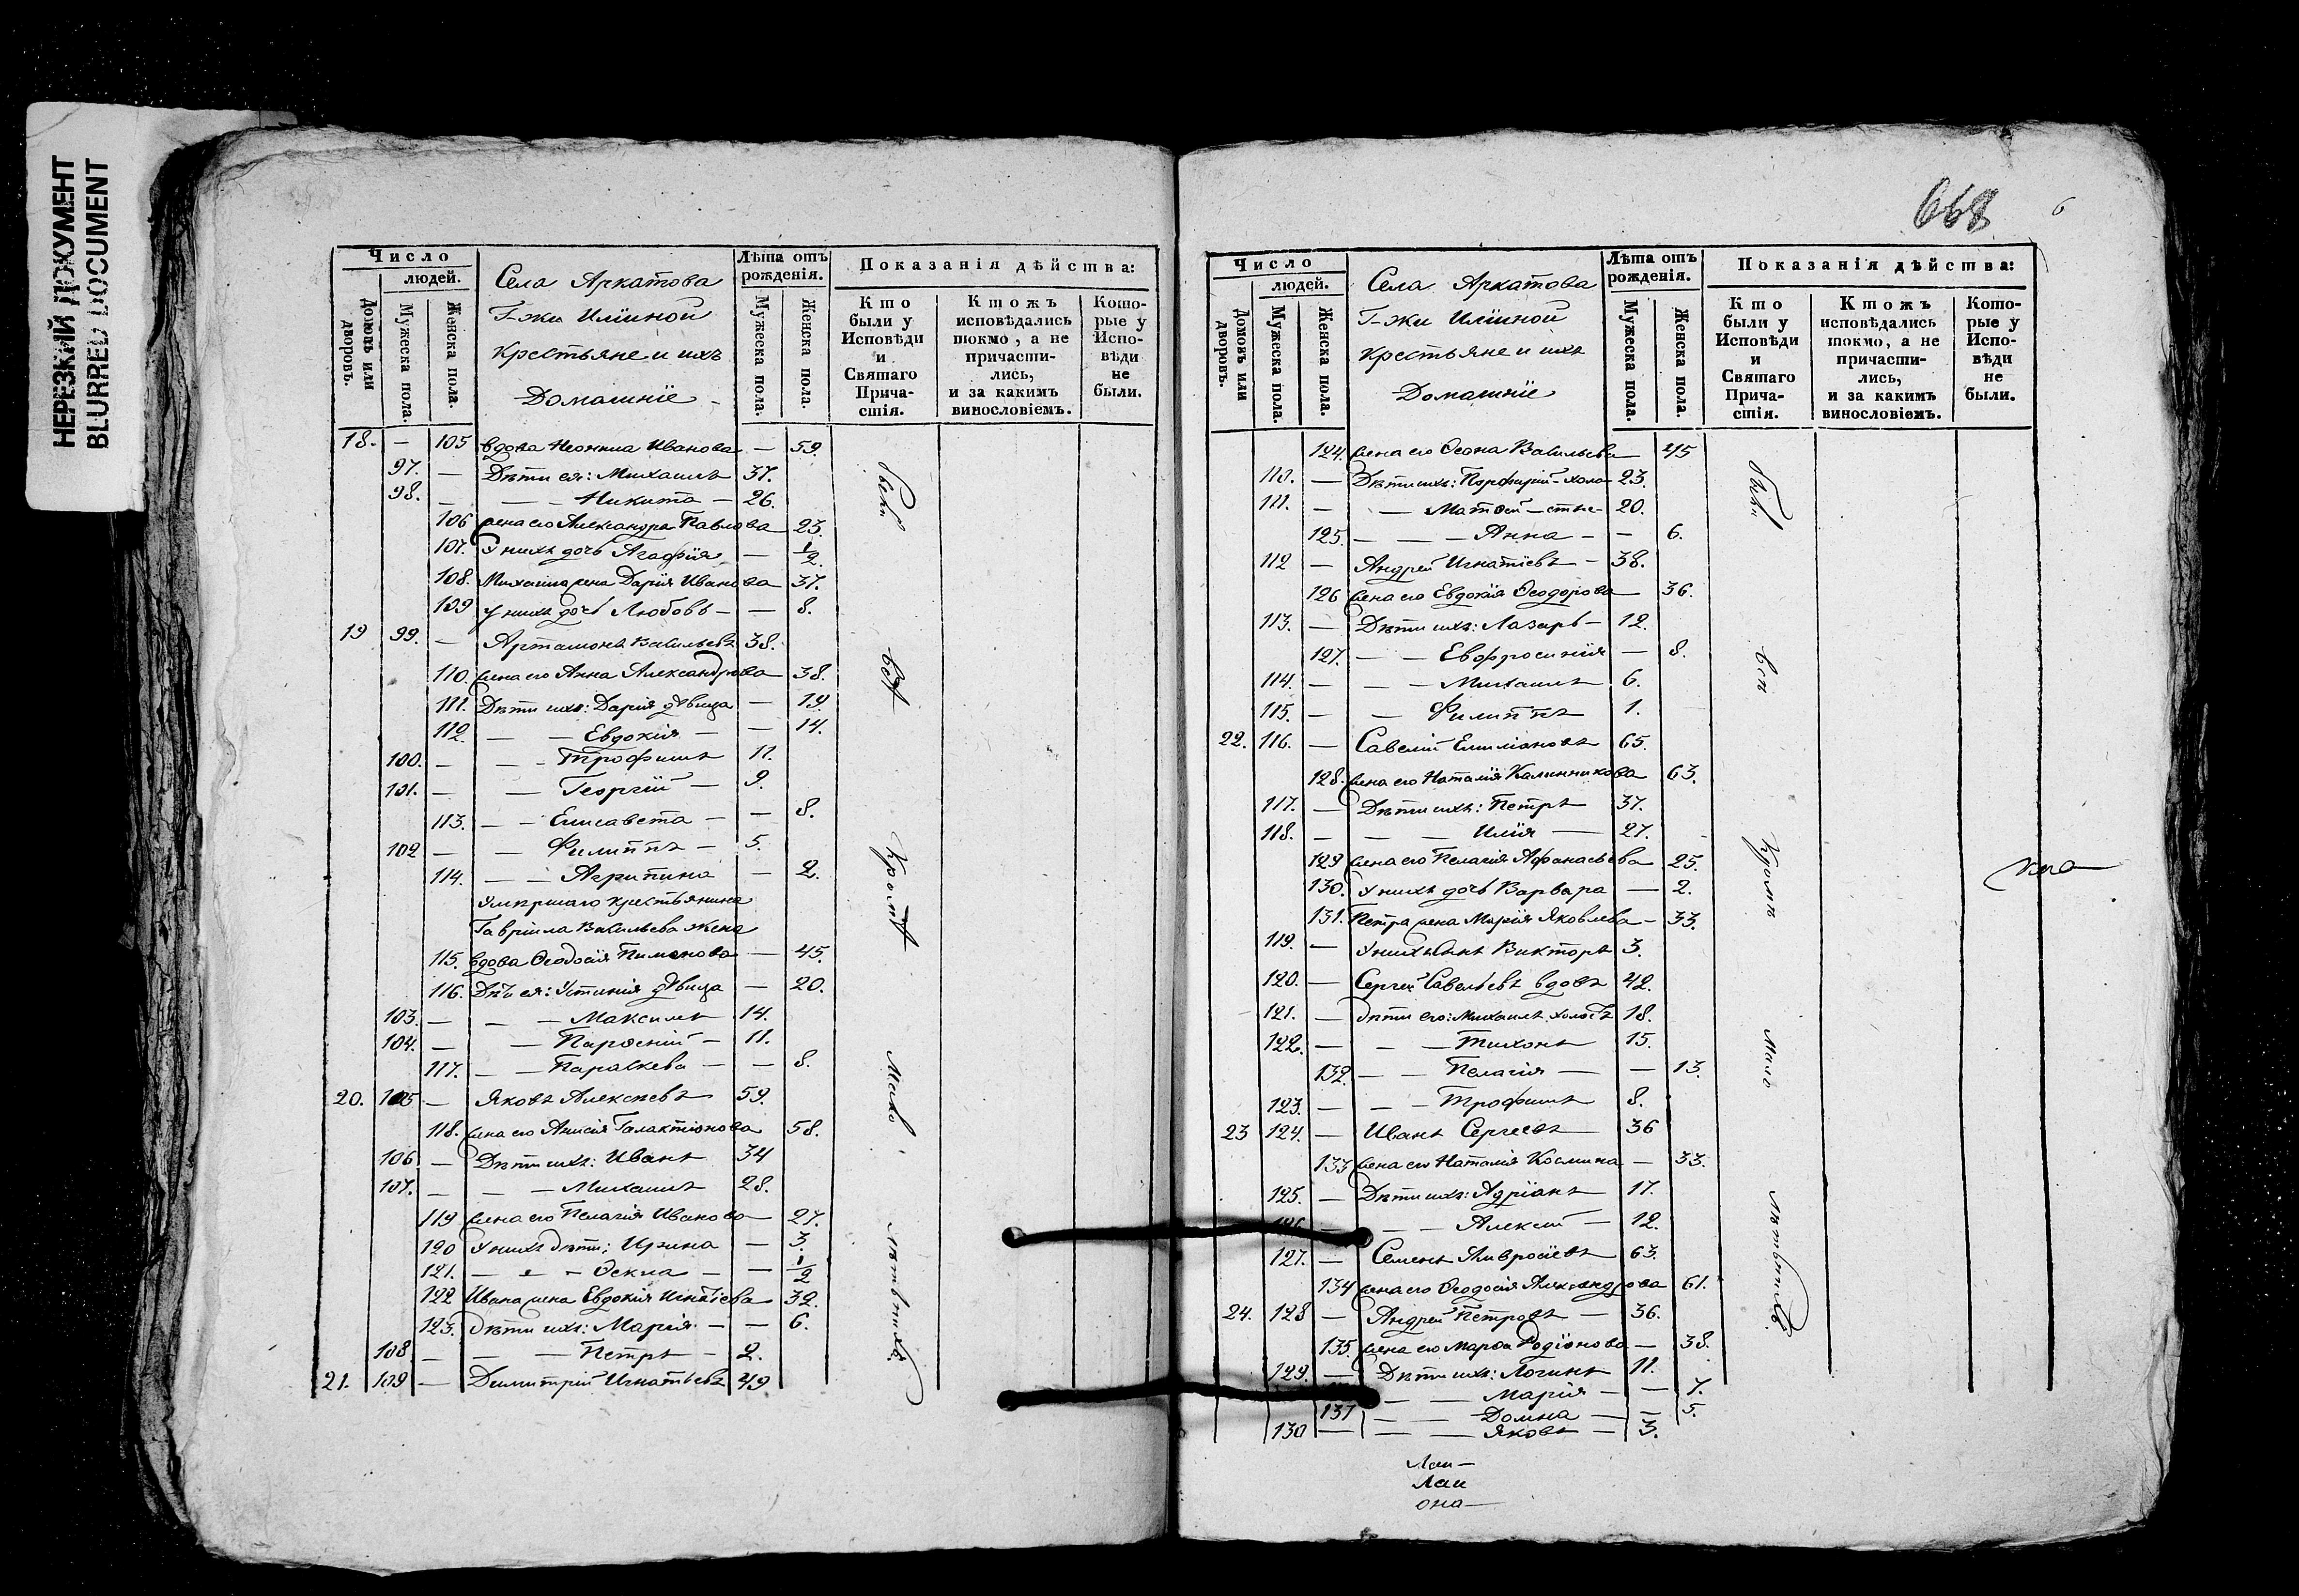 НЕРЕЗКИЙ ДОКУМЕНТ
BLURRED DOCUMENT
668
6
Число
людей.
Домовъ или дворовъ.
Мужеска пола.
Женска пола.
Села Аркатова
Г-жи Илииной
Крестьяне и ихъ
Домашніе
Лѣта отъ рожденія.
Мужеска пола.
Женска пола.
Показанія дѣйства:
Кто были у Исповѣди и Святаго Причастія.
Ктожъ исповѣдались токмо, а не причастились, и за какимъ винословіемъ.
Которые у Исповѣди не были.
18. — 105 вдова Неонила Иванова — 59.
97. — Дѣти ея: Михаилъ 37.
98. — — — Никита — 26.
106 жена его Александра Павлова 23.
107. У нихъ дочь Агафія — 1/2.
108. Михаила жена Дарія Иванова 37.
109 у нихъ дочь Любовь — — 8.
19 99. — Артамонъ Васильевъ 38.
110. жена его Анна Александрова 38.
111. Дѣти ихъ: Дарія дѣвица — 19.
112. — — Евдокія — — 14.
100. — — — Трофимъ 11.
101. — — Георгій — 9.
113. — — Елисавета — — 8.
102 — — Филиппъ — 5.
114. — — Агрипина — 2.
Умершаго крестьянина
Гавріила Васильева жена
115. вдова Ѳеодосія Пимонова — 45.
116. Дѣти ея: Устинія дѣвица — 20.
103. — — — Максимъ 14.
104. — — Парѳеній — 11.
117. — — Параскева — — 8.
20. 105 — Яковъ Алексѣевъ 59.
118. жена его Анисія Галактіонова 58.
106 — Дѣти ихъ: Иванъ 34
107. — — — Михаилъ 28.
119 жена его Пелагія Иванова 27.
120 У нихъ дѣти: Ирина — 3.
121. — — — Ѳекла — — 1/2
122 Ивана жена Евдокія Игнатіева 32.
123. дѣти ихъ: Марія — — 6.
108 — — — Петръ — 2.
21. 109 — Димитрій Игнатьевъ 49
были
всѣ
кромѣ
мало
лѣтныхъ.
Число
людей.
Домовъ или дворовъ.
Мужеска пола.
Женска пола.
Села Аркатова
Г-жи Илииной
Крестьяне и ихъ
Домашніе
Лѣта отъ рожденія.
Мужеска пола.
Женска пола.
Показанія дѣйства:
Кто были у Исповѣди и Святаго Причастія.
Ктожъ исповѣдались токмо, а не причастились, и за какимъ винословіемъ.
Которые у Исповѣди не были.
124. жена его Васильева 45
110. — Дѣти ихъ: Порфирій — холо- 23.
111. — — Матѳей — стые — 20.
125. — — — Анна — — 6.
112 — Андрей Игнатіевъ — 38.
126 жена его Евдокія Ѳеодорова 36.
113. — Дѣти ихъ: Лазарь — 12.
127. — — Евфросинія — 8.
114. — — — Михаилъ 6.
115. — — Филиппъ 1.
22. 116. — Савелій Емиліановъ 65.
128. жена его Наталія Калинникова 63.
117. — Дѣти ихъ: Петръ 37.
118. — — — Илія — 27.
129 жена его Пелагія Афанасьева 25.
130. У нихъ дочь Варвара — 2.
131. Петра жена Марія Яковлева — 33.
119. — У нихъ сынъ Викторъ 3.
120. — Сергей Савельевъ вдовъ 42.
121. — дѣти его: Михаилъ холостъ 18.
122. — — — Тихонъ 15.
132. — — Пелагія — — 13.
123. — — — Трофимъ 8.
23 124. — Иванъ Сергеевъ 36
133 жена его Наталія Космина — 33.
125. — Дѣти ихъ: Адріанъ — 17.
126 — — — Алексій — 12.
127. — Семенъ Амвросіевъ 63.
134 жена его Ѳеодосія Александрова 61.
24. 128 — Андрей Петровъ — 36.
135. жена его Марѳа Родіонова — 38.
129. — Дѣти ихъ: Логинъ 11.
— — Марія — — 7.
137 — — Домна — — 5.
130 — — — Яковъ — 3.
были
всѣ
кромѣ
мало
лѣтныхъ.
она